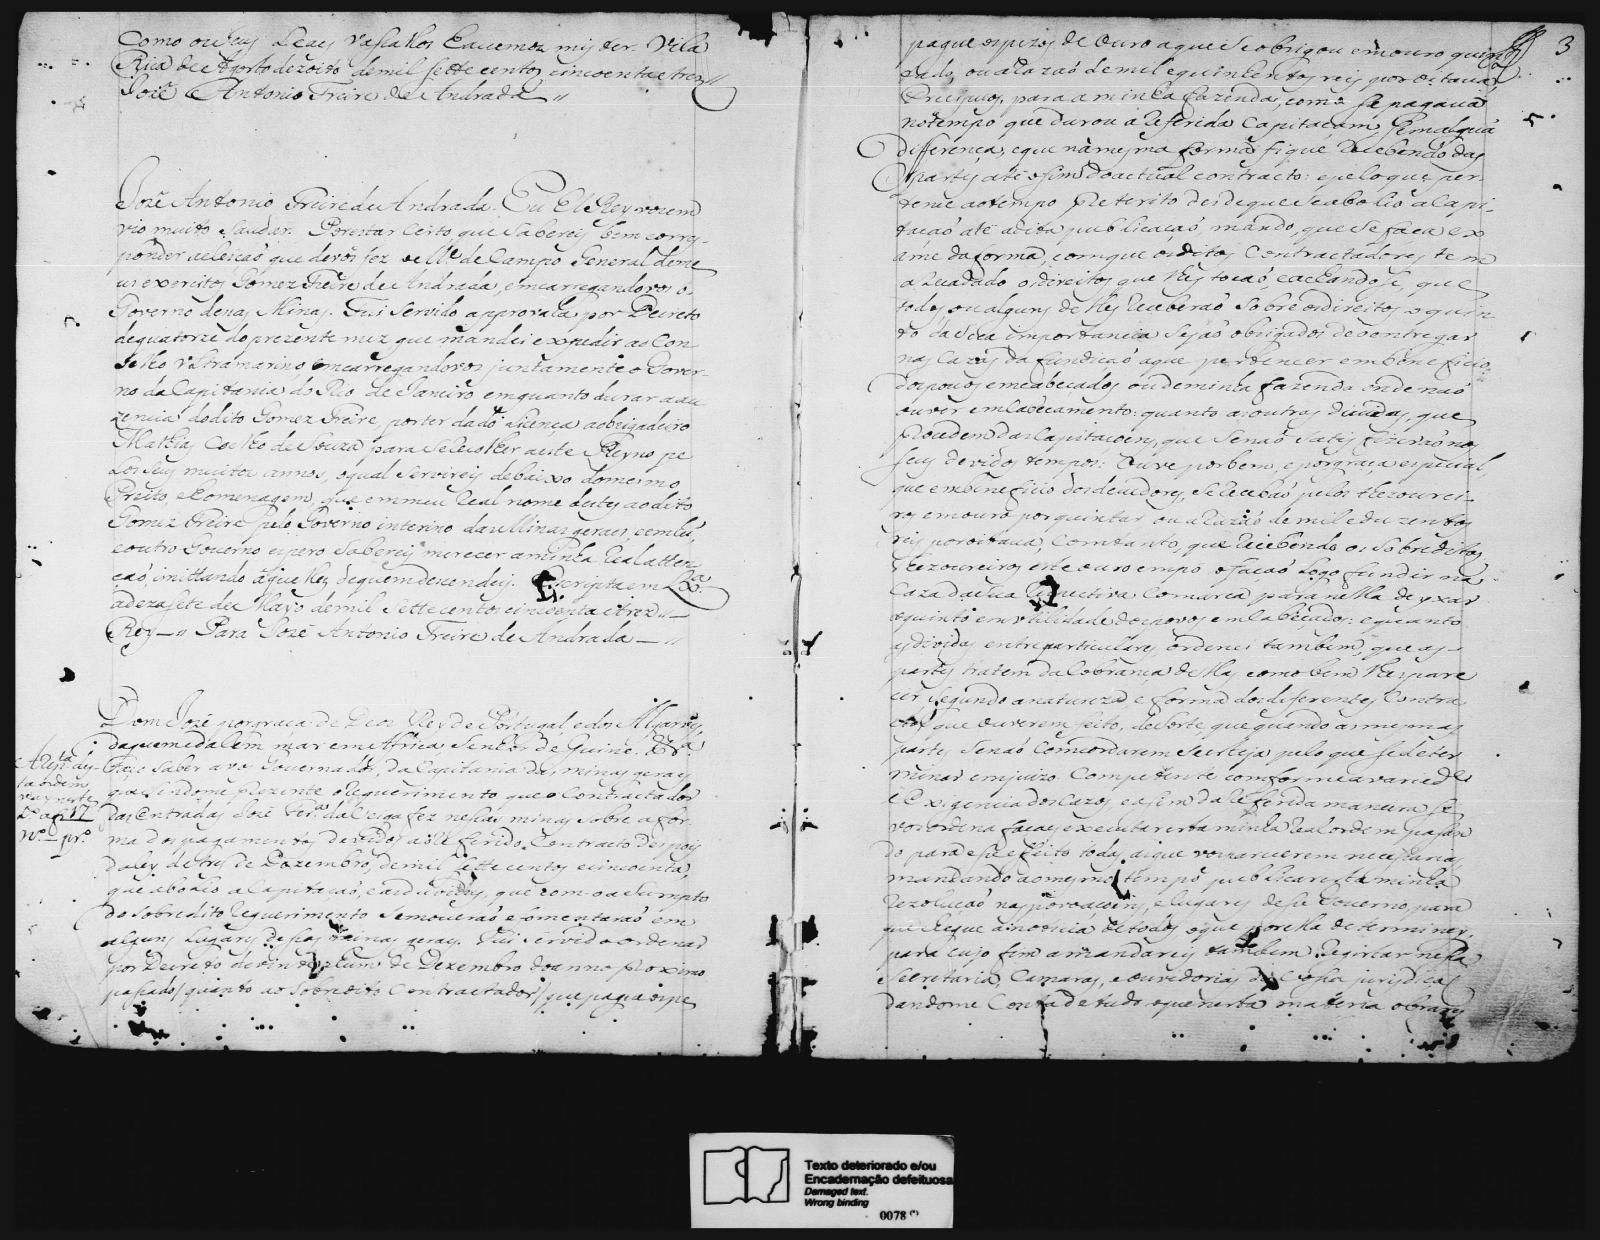 Como ou seus Leaes Vassallos havemos mister. Villa
Rica de Agosto dezoito de mil sette centos cincoenta e tres //
Jozê Antonio Freire de Andrada //
Jozê Antonio Freire de Andrada. Eu El Rey vos em
vio muito saudar. Por estar certo que sabereis bem corres-
ponder a eleição que de vós fez o M.e de Campo General de me
us exercitos Gomez Freire de Andrada, encarregandovos o
Governo denas Minas. Fui servido approvala por Decreto
de quatorze do prezente mez que mandei expedir ao Con
selho Ultramarino encarregandovos juntamente o Gover-
no da Capitania do Rio de Janeiro emquanto durar a au
zencia do dito Gomez Freire, por ter dado licença ao brigadeiro
Mathias Coelho de Souza para se recolher a este Reyno pe
los seus muitos annos, o qual servireis debaixo do mesmo
Preito, e homenagem, que em meu Real nome destes ao dito
Gomez Freire pelo Governo interino das Minas geraes, e em hũ,
e outro Governo espero sabereis merecer a minha Real atten
ção, imittando aquelles de quem descendeis. Escripta em Lx.a
a dezasete de Mayo de mil sette centos cincoenta e trez //—
Rey — // Para Jozê Antonio Freire de Andrada — //
Dom Jozê por graça de Deos Rey de Portugal, e dos Algarves,
daquem e dalém mar em Africa Senhor de Guiné. &.a
Faço saber a vos Governador da Capitania das minas geraes
que sendome prezente o requerimento que o Contractador
das Entradas Jozê Fer.a da Veiga fez nessas minas sobre a for-
ma dos pagamentos devidos ao referido Contracto despois
da ley de tres de Dezembro, de mil sette centos e cincoenta,
que abolio a Capitação, e as duvidas, que com o assumpto
do sobredito requerimento se moverão e fomentarão em
alguns lugares dessas minas geraes. Fui servido ordenar
por Decreto de vinte e hum de Dezembro do anno proximo
passado / quanto ao sobredito Contractador / que pague os pe
17
3
pague os pezos de ouro a que se obrigou em ouro quin
tado, ou a razaõ de mil e quinhentos reis por oitava
Precipuos, para a minha fazenda, como se pagava
no tempo que durou a referida Capitacam, sem alguã
differença, e que na mesma forma fique recebendo das
partes até o fim do actual contracto: e pelo que per-
tence ao tempo preterito desde que se abolio a Capi-
tação até a dita publicação, mando, que se faça ex
ame da forma, com que os ditos Contractadores tem
arrecadado os direitos, que lhes tocaõ, e achandose, que
todos ou alguns delles receberaõ sobre os direitos o quin
to da sua importancia sejaõ obrigados de o entregar
nas Cazas da fundição a que pertencer em beneficio
dos povos encabeçados ou de minha fazenda onde naõ
ouver emcabeçamento: quanto as outras dividas, que
procedem das Capitaçoens, que se naõ satisfizeraõ nos
seus devidos tempos: Ouve por bem, e por graça especial,
que em beneficio dos devedores, se recebaõ pelos thezourei-
ros em ouro por quintar ou a razaõ de mil e duzentos
reis por oitava, Comtanto, que recebendo os sobreditos
thezoureiros este ouro em pó, o façaõ logo fundir na
Caza da sua respectiva Comarca para nella deyxar
o quinto em utilidade dos povos emcabeçados: e quanto
as dividas entre particulares ordenei tambem, que as
partes tratem da cobrança dellas como bem lhes pare
cer, segundo a natureza, e forma dos diferentes Contra
ctos que ouverem feito, de sorte, que quando as mesmas
partes se naõ concordarem se esteja pelo que se deter
minar em juizo Competente conforme a variede
e exigencia dos cazos, e assim da referida maneira se
vos ordena façaes executar esta minha Real ordem passan
do para esse efeito todas as que vos parecerem necessarias,
mandando ao mesmo tempo publicar esta minha
rezolução nas povoaçoens, e lugares desse Governo, para
que chegue a noticia de todos o que por ella determinar,
para cujo fim a mandareis tambem registar nessa
Secretaria, Camaras, e ouvidorias de cessa jurisdição
dandome Conta de tudo o que nesta materia obrares
Texto deteriorado e/ou
Encadernação defeituosa
Damaged text.
Wrong binding
0078 (*)